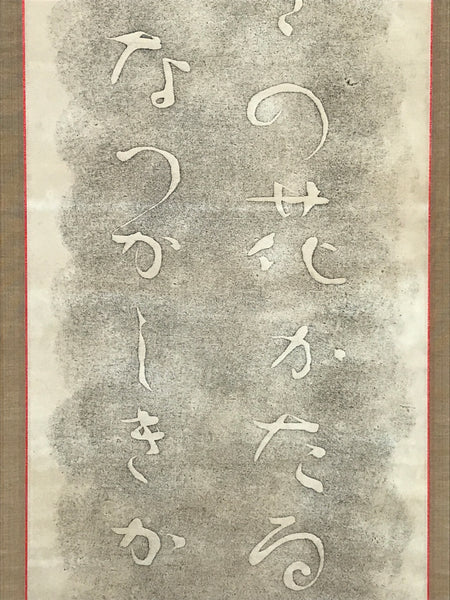 の花かたる
なつかしきか